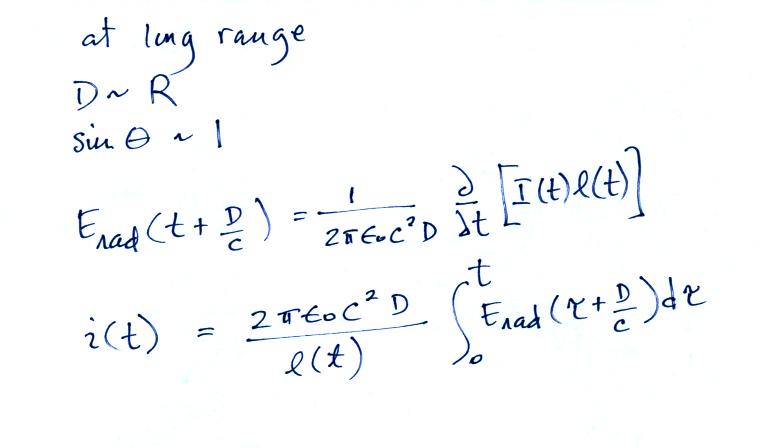 at long range
D ~ R
sin θ ~ 1
E_rad (t + D/c) = 1/(2πε₀c²D) ∂/∂t [I(t)l(t)]
i(t) = 2πε₀c²D/l(t) ∫₀ᵗ E_rad (τ + D/c) dτ